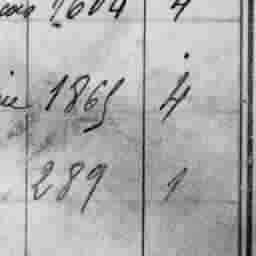 1604 4
1865 4
289 1